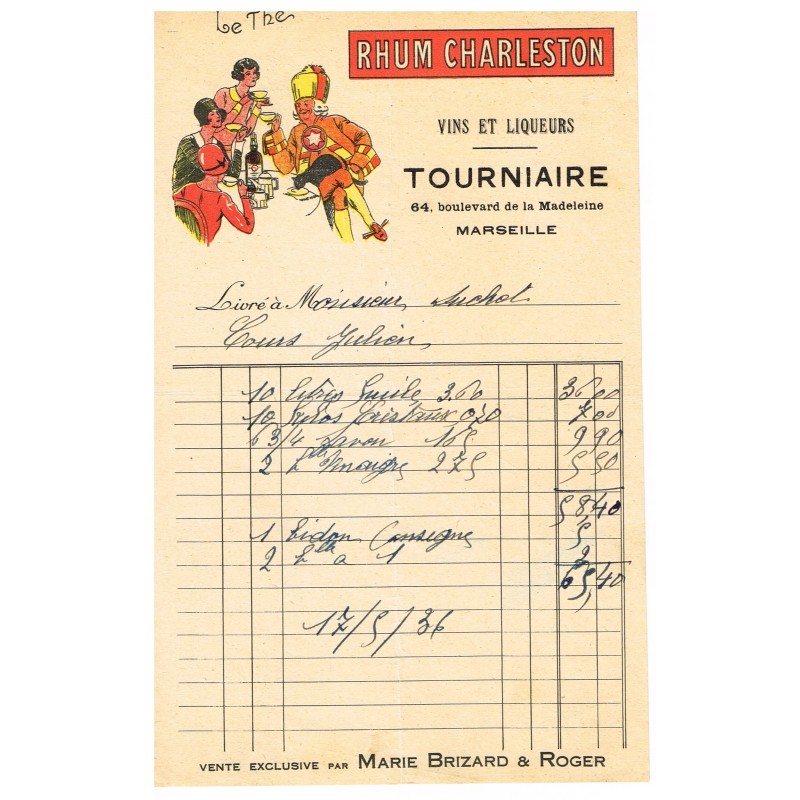 Le Thé
RHUM CHARLESTON
VINS ET LIQUEURS
TOURNIAIRE
64, boulevard de la Madeleine
MARSEILLE
Livré à Monsieur Suchet
Cours Julien
10 litres huile 3.60 36 00
10 kilos Cristaux 0,70 7 00
6 3/4 savon 165 9 90
2 btles Vinaigre 275 5 50
58,40
1 bidon Consigne 5
2 btles a 1 2
65,40
17/5/36
VENTE EXCLUSIVE PAR MARIE BRIZARD & ROGER